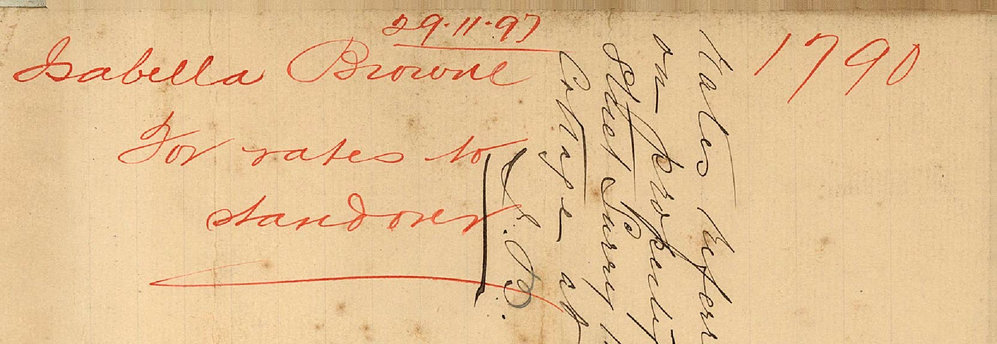 29.11.97
Isabella Browne
1790
For rates to
standover
rates referr
on property
Street Surry
Cottage at